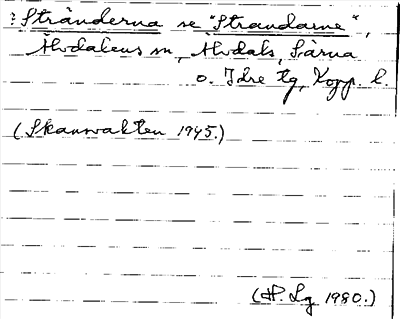 : Stränderna se "Strandarne",
Älvdalens sn, Älvdals, Särna
o. Idre tg, Kopp. l.
(Skansvakten 1945.)
(H. Lg 1980.)